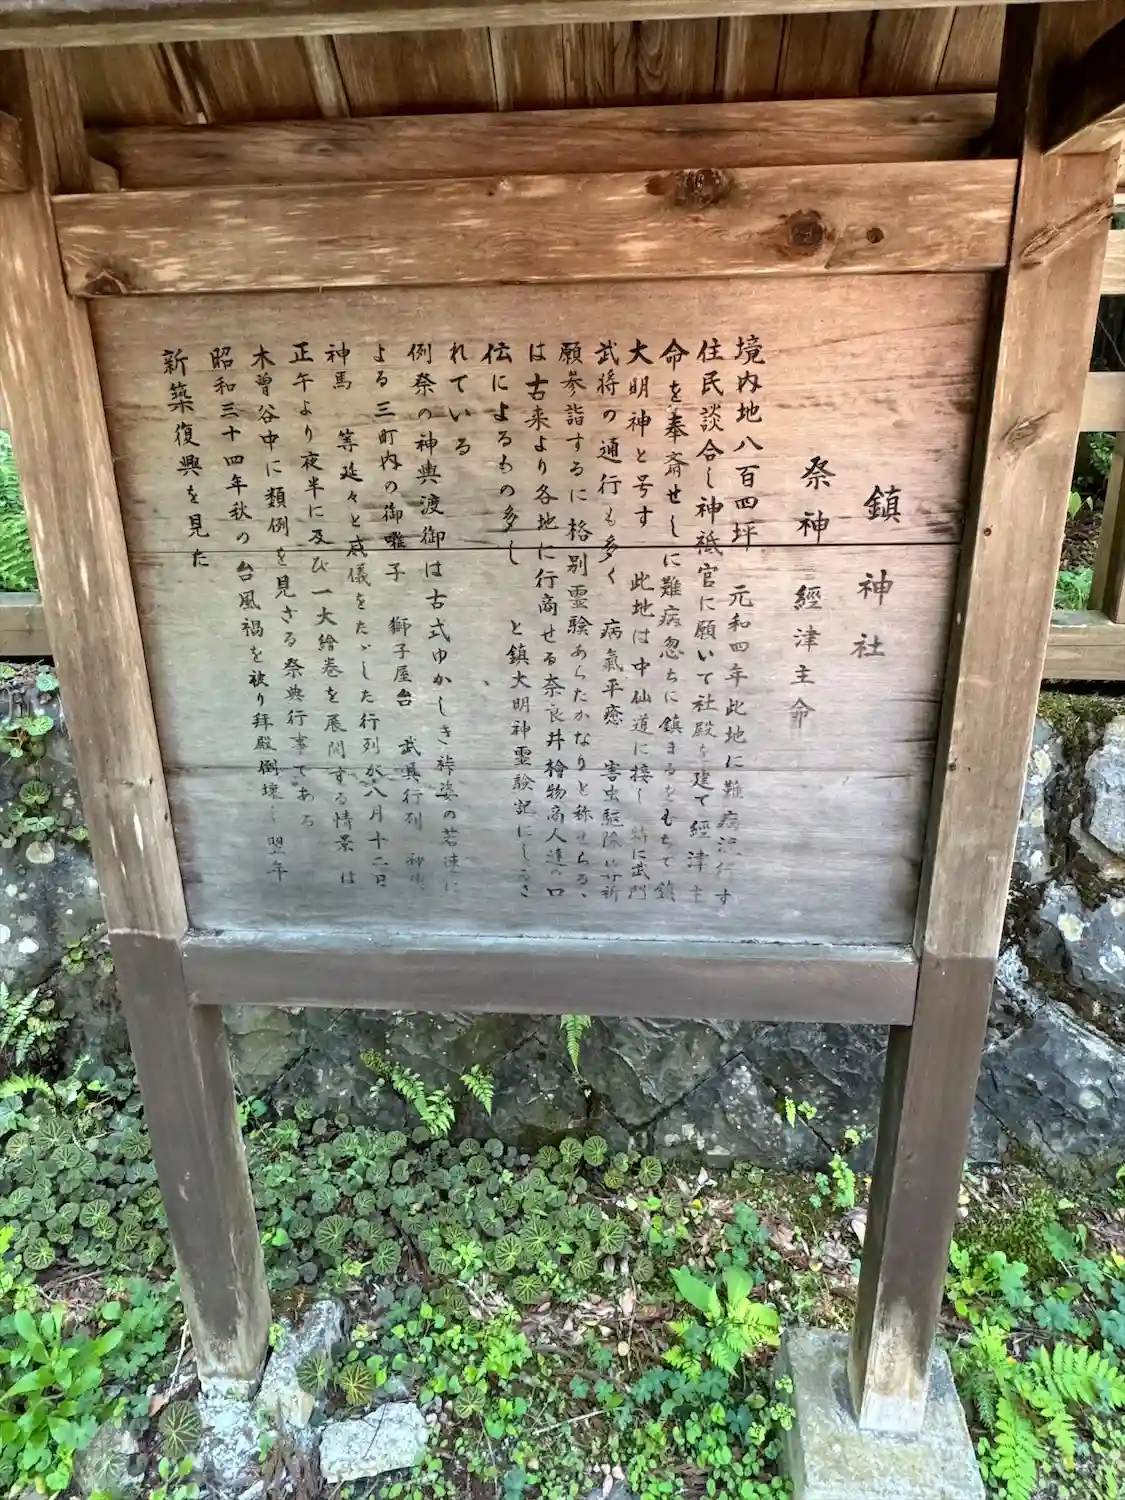 鎮神社
祭神 經津主命
境内地八百四坪 元和四年此地に難病流行す
住民談合し神祗官に願いて社殿を建て經津主
命を奉斎せしに難病忽ちに鎮まるをもちて鎮
大明神と号す 此地は中仙道に接し特に武門
武将の通行も多く 病氣平癒 害虫駆除等祈
願参詣するに格別霊験あらたかなりと称せらる、
は古来より各地に行商せる奈良井檜物商人達の口
伝によるもの多し と鎮大明神霊験記にしるさ
れている
例祭の神輿渡御は古式ゆかしき裃姿の若連に
よる三町内の御囃子 獅子屋台 武具行列
神馬 等延々と威儀をたゞした行列が八月十二日
正午より夜半に及び一大繪巻を展開する情景は
木曽谷中に類例を見さる祭典行事である
昭和三十四年秋の台風禍を被り拝殿倒壊し翌年
新築復興を見た